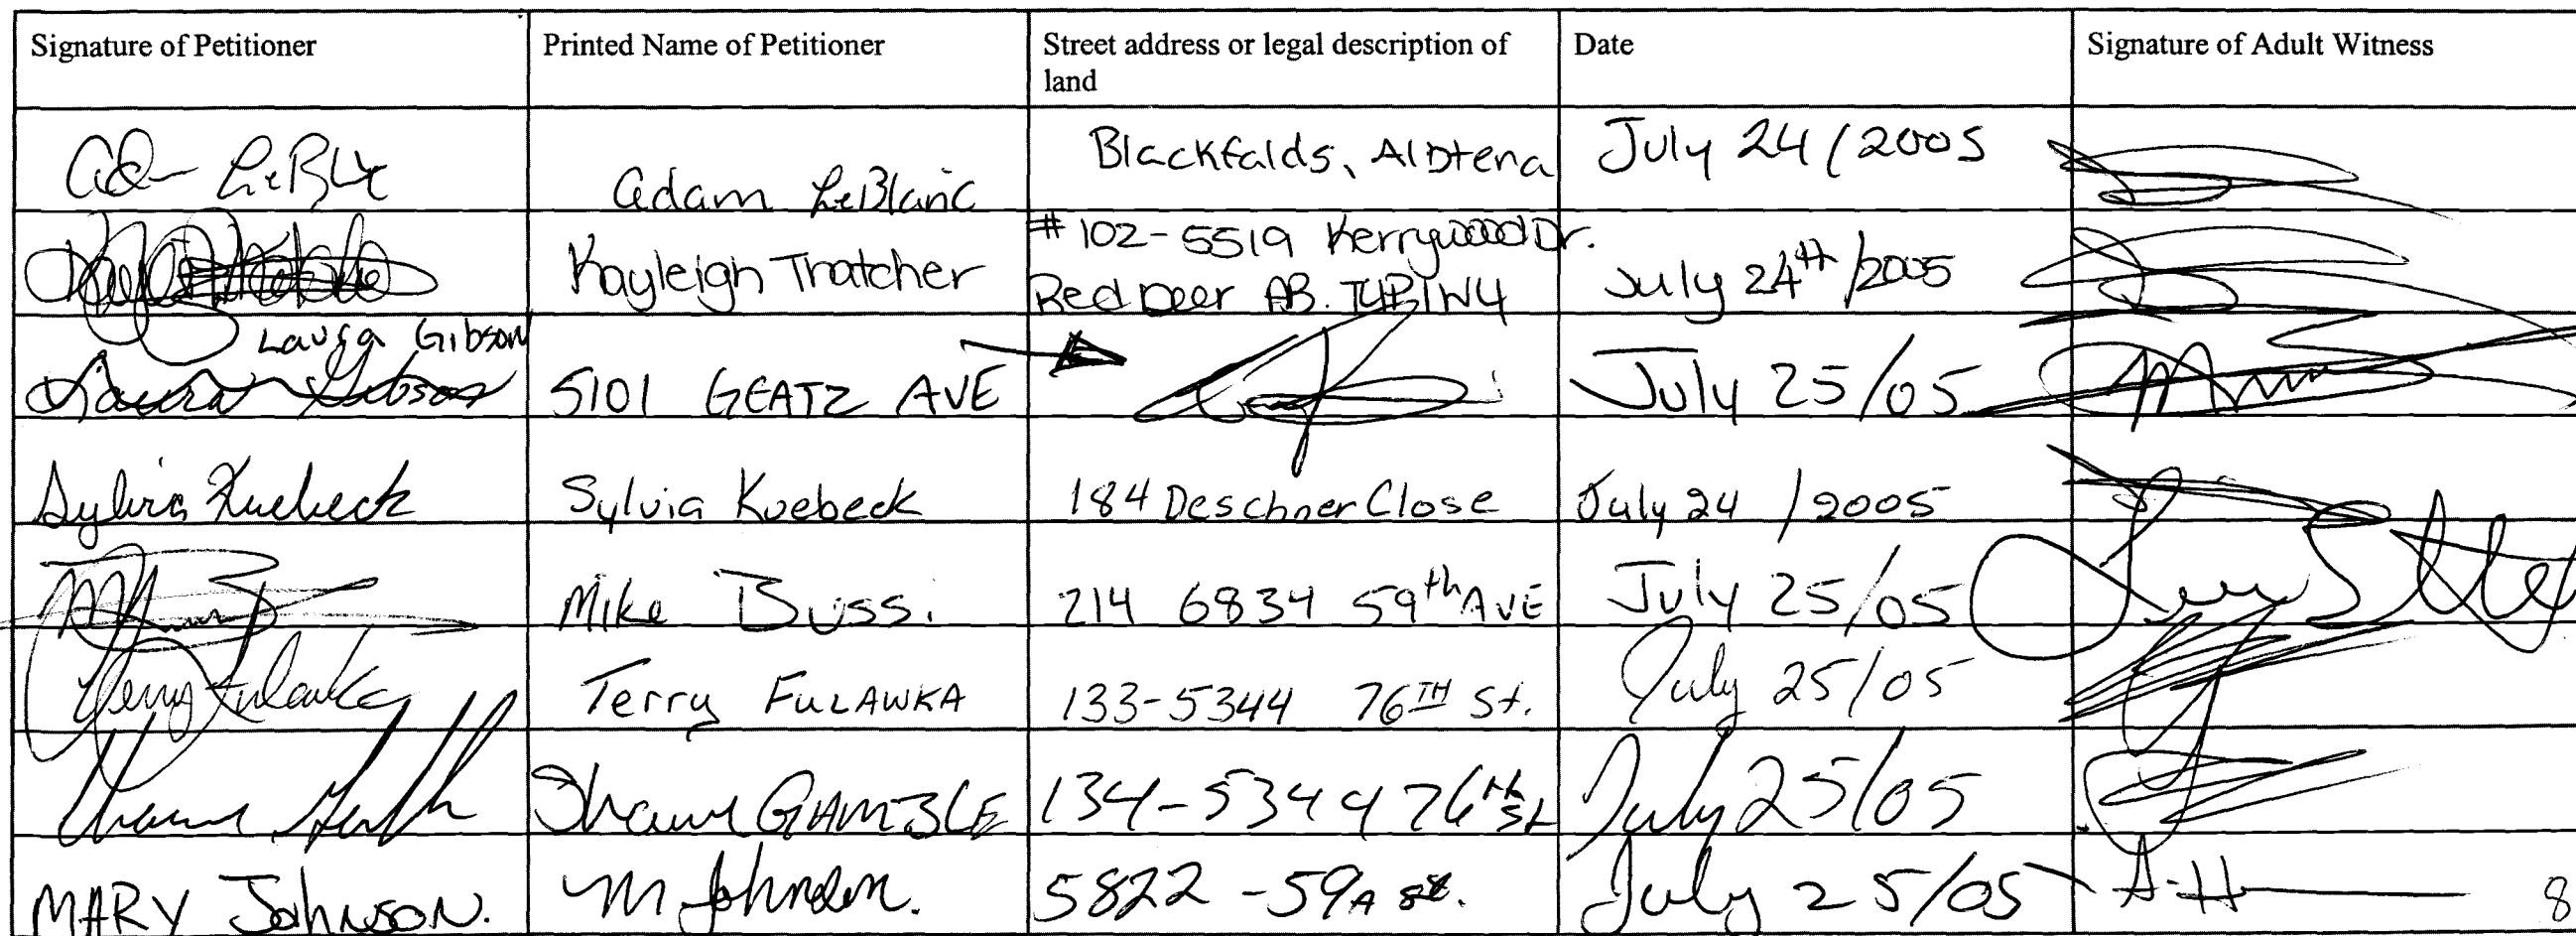 Signature of Petitioner
Printed Name of Petitioner
Street address or legal description of
land
Date
Signature of Adult Witness
Adam LeBlanc
Blackfalds, Alberta
July 24/2005
Kayleigh Thatcher
#102-5519 Kerrywood Dr.
Red Deer AB. T4P1W4
July 24th/2005
Laura Gibson
Laura Gibson
5101 GEATZ AVE
July 25/05
Sylvia Kuebeck
Sylvia Kuebeck
184 Deschner Close
July 24 /2005
Mike Buss.
214 6834 59th AVE
July 25/05
Terry Fulawka
Terry FULAWKA
133-5344 76TH St.
July 25/05
Shawn GAMBLE
134-5344 76th St
July 25/05
MARY JOHNSON.
M Johnson.
5822 -59A St.
July 25/05
8